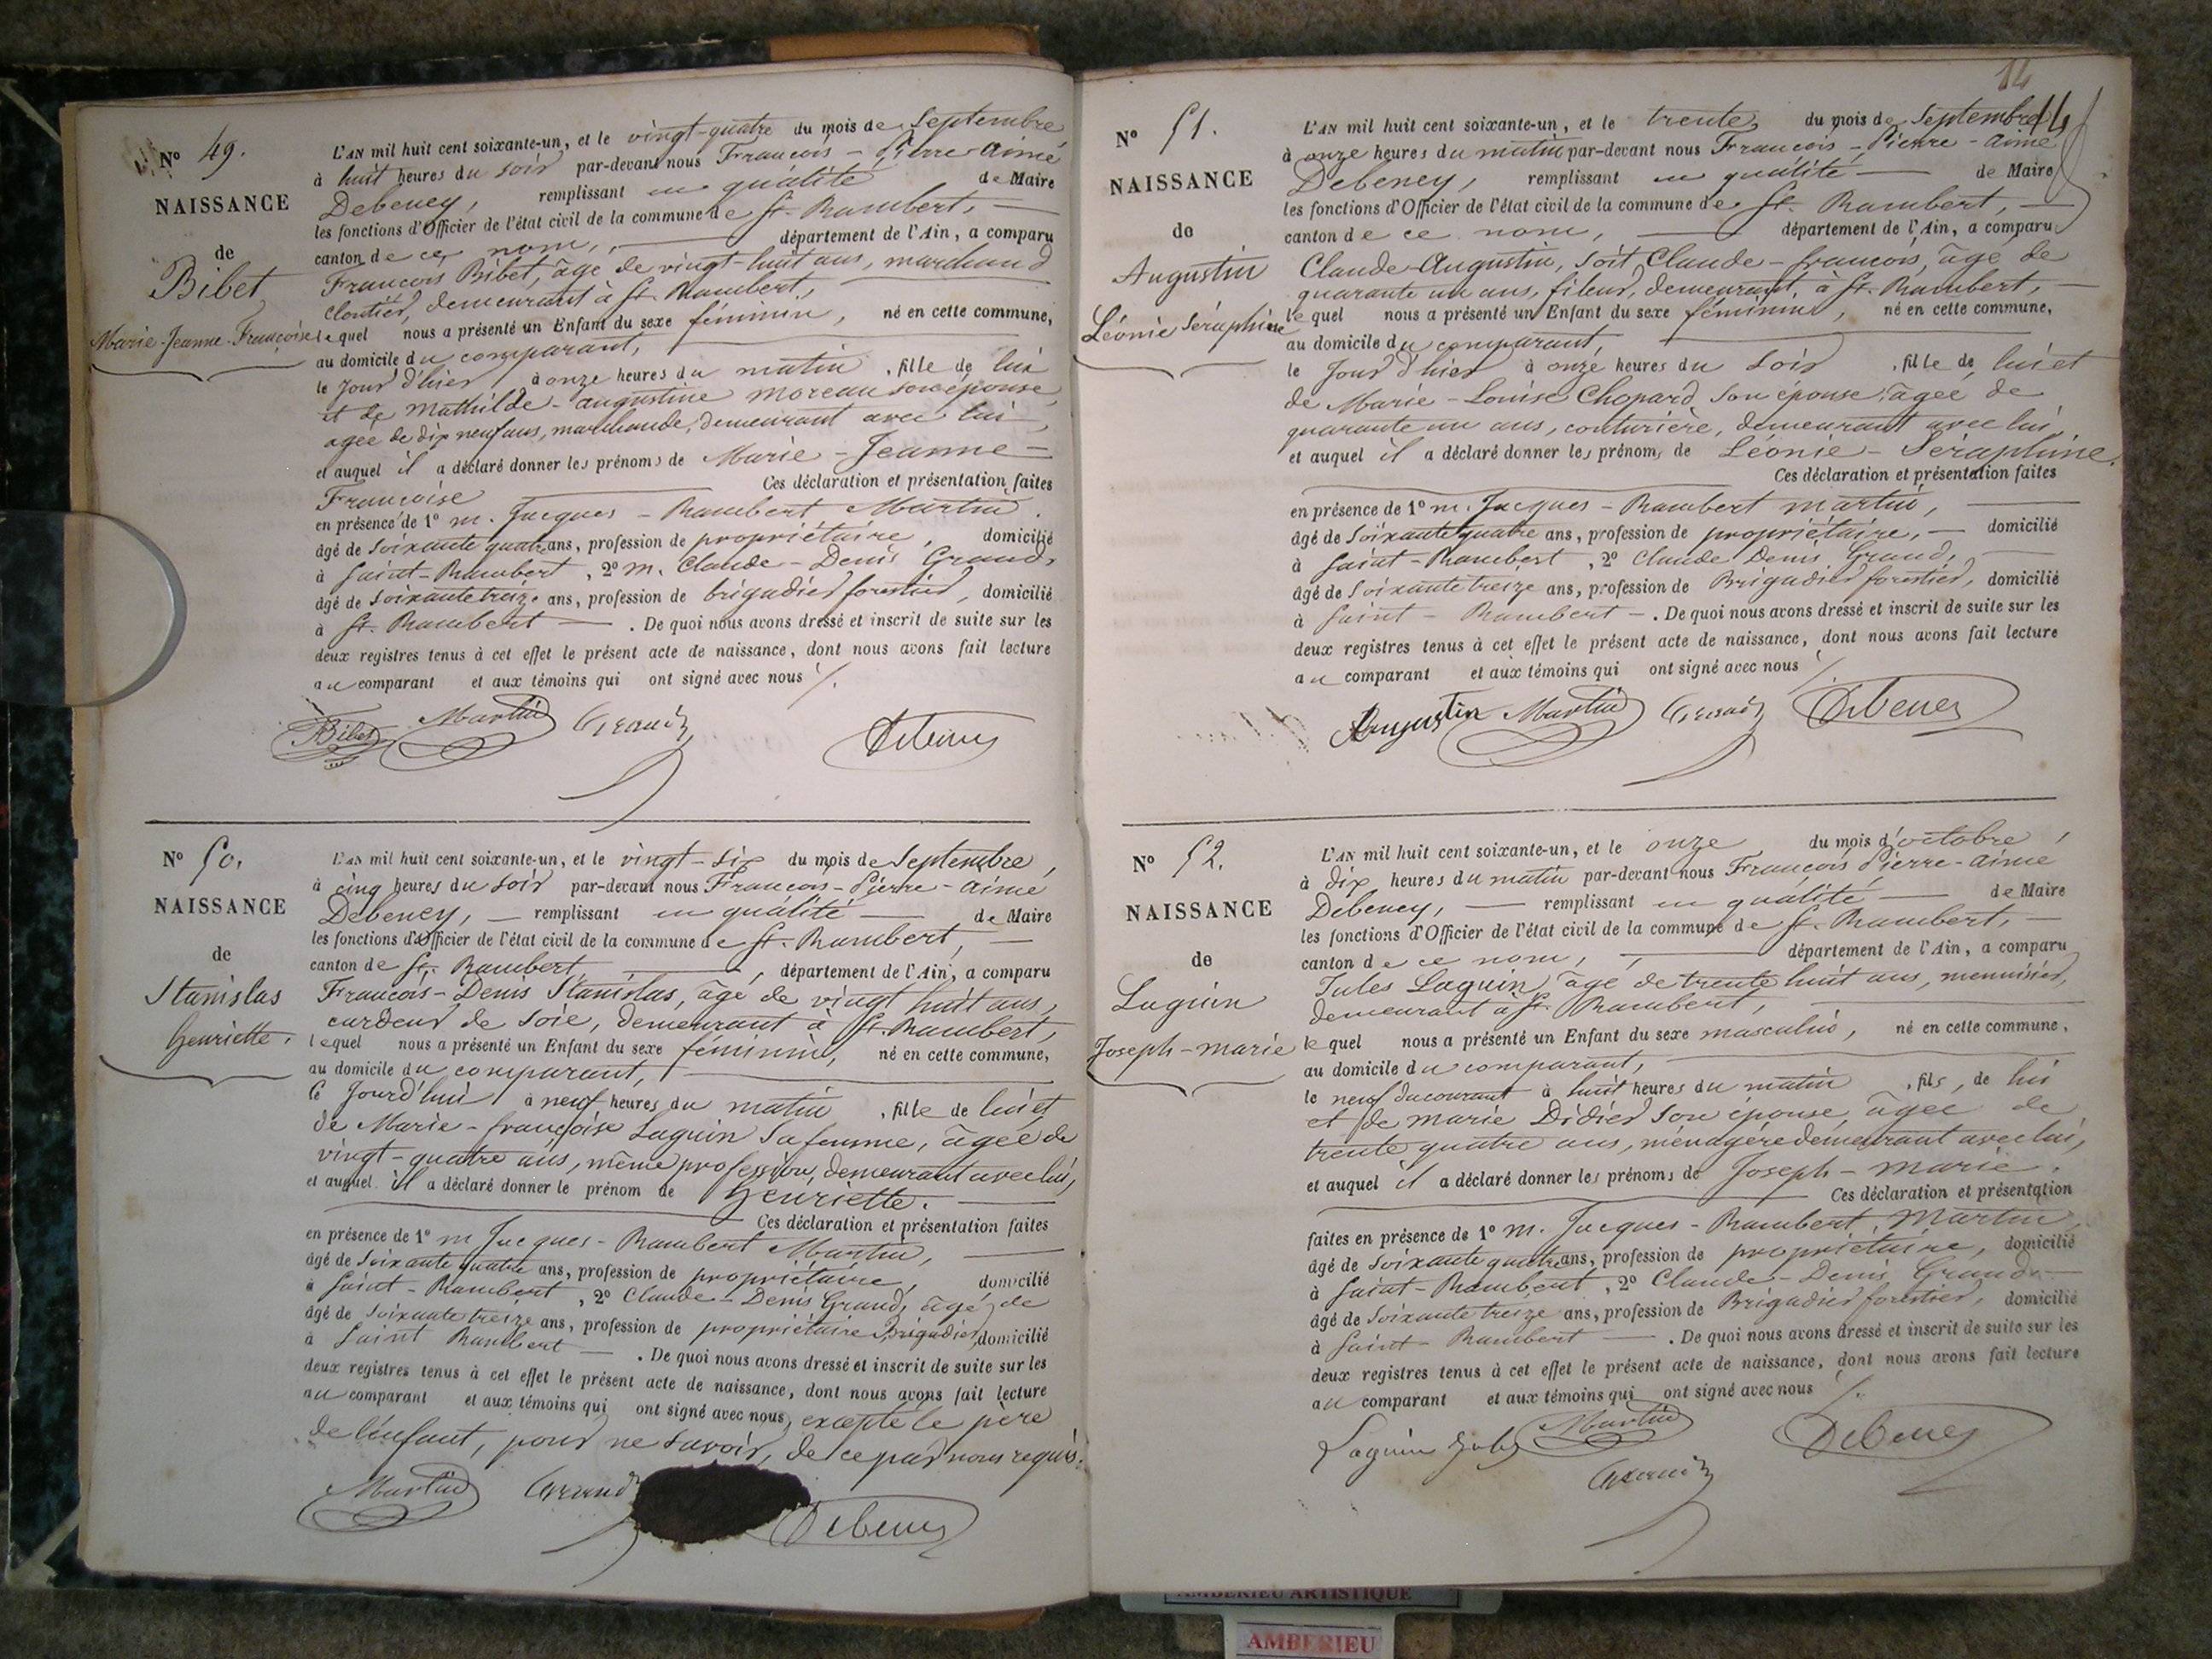 Nº 49.
NAISSANCE
de
Bibet
Marie-Jeanne-Françoise
L'AN mil huit cent soixante-un, et le vingt-quatre du mois de Septembre
à huit heures du soir par-devant nous François-Pierre-Aimé
Debeney, remplissant en qualité de Maire
les fonctions d'Officier de l'état civil de la commune de St. Rambert,
canton de ce nom, département de l'Ain, a comparu
François Bibet, âgé de vingt-huit ans, marchand
cloutier, demeurant à St. Rambert,
lequel nous a présenté un Enfant du sexe féminin, né en cette commune,
au domicile du comparant,
le jour d'hier à onze heures du matin, fille de lui
et de Mathilde-augustine moreau son épouse,
agée de dix neuf ans, marchande, demeurant avec lui,
et auquel il a déclaré donner les prénoms de Marie-Jeanne-
Françoise Ces déclaration et présentation faites
en présence de 1º m. Jacques-Rambert Martin,
âgé de soixante quatre ans, profession de propriétaire, domicilié
à Saint-Rambert, 2º m. Claude-Denis Grand,
âgé de soixante treize ans, profession de brigadier forestier, domicilié
à St. Rambert. De quoi nous avons dressé et inscrit de suite sur les
deux registres tenus à cet effet le présent acte de naissance, dont nous avons fait lecture
au comparant et aux témoins qui ont signé avec nous
Bibet Martin Grand Debeney
Nº 50.
NAISSANCE
de
Stanislas
henriette.
L'AN mil huit cent soixante-un, et le vingt-six du mois de Septembre,
à cinq heures du soir par-devant nous François-Pierre-aimé
Debeney, remplissant en qualité de Maire
les fonctions d'Officier de l'état civil de la commune de St. Rambert,
canton de St. Rambert, département de l'Ain, a comparu
François-Denis Stanislas, âgé de vingt huit ans,
cardeur de soie, demeurant à St. Rambert,
lequel nous a présenté un Enfant du sexe féminin, né en cette commune,
au domicile du comparant,
ce jourd'hui à neuf heures du matin, fille de lui et
de Marie-françoise Laguin sa femme, âgée de
vingt-quatre ans, même profession, demeurant avec lui,
et auquel il a déclaré donner le prénom de henriette.
Ces déclaration et présentation faites
en présence de 1º m Jacques-Rambert Martin,
âgé de soixante quatre ans, profession de propriétaire, domicilié
à Saint-Rambert, 2º Claude-Denis Grand, âgé de
âgé de soixante treize ans, profession de propriétaire Brigadier, domicilié
à Saint Rambert. De quoi nous avons dressé et inscrit de suite sur les
deux registres tenus à cet effet le présent acte de naissance, dont nous avons fait lecture
au comparant et aux témoins qui ont signé avec nous, excepté le père
de l'enfant, pour ne savoir, de ce par nous requis.
Martin Grand Debeney
14
14
Nº 51.
NAISSANCE
de
Augustin
Léonie Séraphine
L'AN mil huit cent soixante-un, et le trente du mois de Septembre
à onze heures du matin par-devant nous François-Pierre-aimé
Debeney, remplissant en qualité de Maire
les fonctions d'Officier de l'état civil de la commune de St. Rambert,
canton de ce nom, département de l'Ain, a comparu
Claude-Augustin, soit Claude-françois, âgé de
quarante un ans, fileur, demeurant à St. Rambert,
lequel nous a présenté un Enfant du sexe féminin, né en cette commune,
au domicile du comparant,
le jour d'hier à onze heures du soir, fille de lui et
de Marie-Louise Chopard son épouse, âgée de
quarante un ans, couturière, demeurant avec lui,
et auquel il a déclaré donner les prénoms de Léonie-Séraphine.
Ces déclaration et présentation faites
en présence de 1º m. Jacques-Rambert martin,
âgé de soixante quatre ans, profession de propriétaire, domicilié
à Saint-Rambert, 2º Claude Denis Grand,
âgé de soixante treize ans, profession de Brigadier forestier, domicilié
à Saint-Rambert. De quoi nous avons dressé et inscrit de suite sur les
deux registres tenus à cet effet le présent acte de naissance, dont nous avons fait lecture
au comparant et aux témoins qui ont signé avec nous
Augustin Martin Grand Debeney
Nº 52.
NAISSANCE
de
Laguin
Joseph-marie
L'AN mil huit cent soixante-un, et le onze du mois d'octobre,
à dix heures du matin par-devant nous François Pierre-aimé
Debeney, remplissant en qualité de Maire
les fonctions d'Officier de l'état civil de la commune de St. Rambert,
canton de ce nom, département de l'Ain, a comparu
Jules Laguin, âgé de trente huit ans, menuisier,
demeurant à St. Rambert,
lequel nous a présenté un Enfant du sexe masculin, né en cette commune,
au domicile du comparant,
le neuf du courant à huit heures du matin, fils, de lui
et de marie Didier son épouse, âgée de
trente quatre ans, ménagère demeurant avec lui,
et auquel il a déclaré donner les prénoms de Joseph-marie.
Ces déclaration et présentation
faites en présence de 1º m. Jacques-Rambert Martin,
âgé de soixante quatre ans, profession de propriétaire, domicilié
à Saint-Rambert, 2º Claude-Denis Grand
âgé de soixante treize ans, profession de Brigadier forestier, domicilié
à Saint-Rambert. De quoi nous avons dressé et inscrit de suite sur les
deux registres tenus à cet effet le présent acte de naissance, dont nous avons fait lecture
au comparant et aux témoins qui ont signé avec nous
Laguin Jules Martin Debeney
Grand
AMBERIEU ARTISTIQUE
AMBERIEU